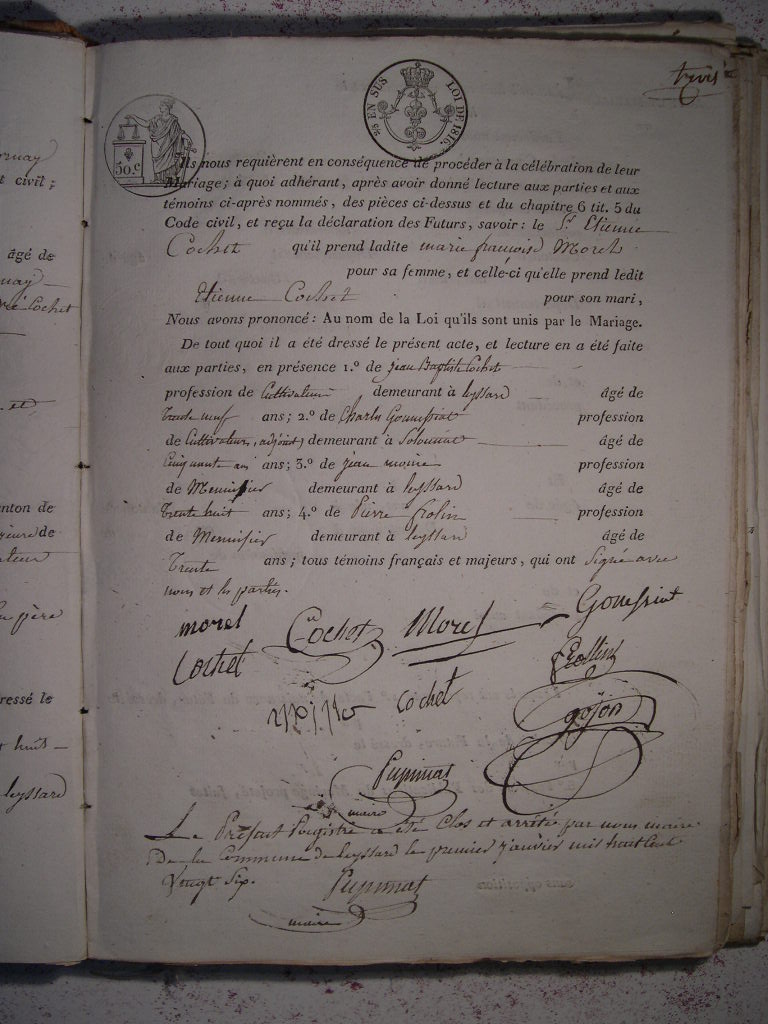 rnay
t civil ;
âgé de
nay
Cochet
et
nton de
ieure de
ateur
père
ressé le
huit
leyssard
50 c
25 EN SUS LOI DE 1816.
Ils nous requièrent en conséquence de procéder à la célébration de leur
Mariage ; à quoi adhérant, après avoir donné lecture aux parties et aux
témoins ci-après nommés, des pièces ci-dessus et du chapitre 6 tit. 5 du
Code civil, et reçu la déclaration des Futurs, savoir : le Sr Etienne
Cochet qu'il prend ladite marie françoise Morel
pour sa femme, et celle-ci qu'elle prend ledit
Etienne Cochet pour son mari,
Nous avons prononcé : Au nom de la Loi qu'ils sont unis par le Mariage.
De tout quoi il a été dressé le présent acte, et lecture en a été faite
aux parties, en présence 1.º de jean Baptiste Cochet
profession de Cultivateur demeurant à leyssard âgé de
trente neuf ans ; 2.º de Charles Gouissiat profession
de Cultivateur, adjoint, demeurant à Solomiat âgé de
Cinquante ans ans ; 3.º de jean moine profession
de Menuisier demeurant à leyssard âgé de
trente huit ans ; 4.º de Pierre Crolin profession
de Menuisier demeurant à leyssard âgé de
Trente ans ; tous témoins français et majeurs, qui ont Signé avec
nous et les parties.
morel Cochet Morel Gouissiat
Cochet
Cochet
gojon
Pupunat
maire
Le Présent Registre a été Clos et arrêté par nous maire
De la Commune de leyssard le premier janvier mil huit Cent
Vingt Six. Pupunat
maire